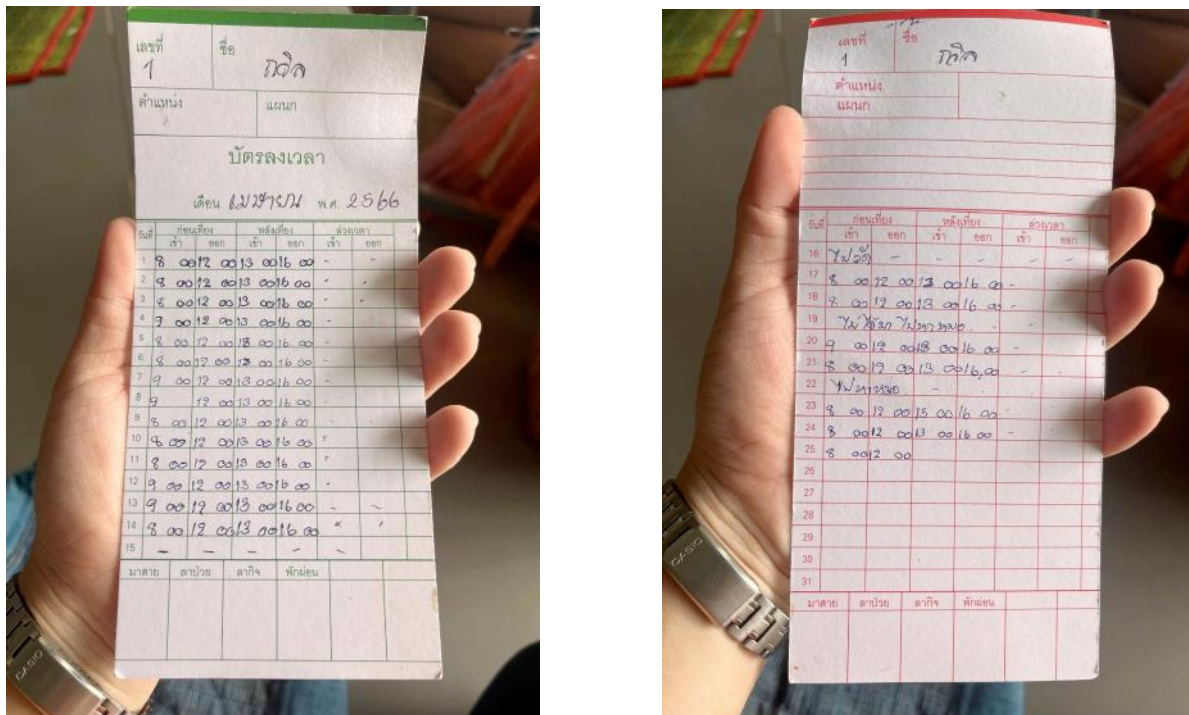 เลขที่ ชื่อ
1 ถวิล
ตำแหน่ง แผนก
บัตรลงเวลา
เดือน เมษายน พ.ศ. 2566
วันที่ ก่อนเที่ยง หลังเที่ยง ล่วงเวลา
เข้า ออก เข้า ออก เข้า ออก
1 8 00 12 00 13 00 16 00 - -
2 8 00 12 00 13 00 16 00 - -
3 8 00 12 00 13 00 16 00 - -
4 9 00 12 00 13 00 16 00 - -
5 8 00 12 00 13 00 16 00 -
6 8 00 12 00 13 00 16 00 -
7 9 00 12 00 13 00 16 00 -
8 9 12 00 13 00 16 00 -
9 8 00 12 00 13 00 16 00 -
10 8 00 12 00 13 00 16 00
11 8 00 12 00 13 00 16 00
12 9 00 12 00 13 00 16 00 -
13 9 00 12 00 13 00 16 00 - -
14 8 00 12 00 13 00 16 00
15 - - - - -
มาสาย ลาป่วย ลากิจ พักผ่อน
CASIO
เลขที่ ชื่อ
1 ถวิล
ตำแหน่ง
แผนก
วันที่ ก่อนเที่ยง หลังเที่ยง ล่วงเวลา
เข้า ออก เข้า ออก เข้า ออก
16 ไปวัด - - - - -
17 8 00 12 00 13 00 16 00 -
18 8 00 12 00 13 00 16 00 -
19 ไม่ได้มา ไปหาหมอ - -
20 9 00 12 00 13 00 16 00 -
21 8 00 12 00 13 00 16,00 -
22 ไปหาหมอ - - -
23 8 00 12 00 13 00 16 00 -
24 8 00 12 00 13 00 16 00 -
25 8 00 12 00
26
27
28
29
30
31
มาสาย ลาป่วย ลากิจ พักผ่อน
CASIO